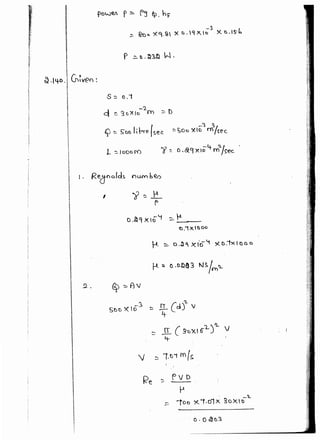 power P = ρg φ. hf
= 800 × 9.81 × 0.19×10⁻³ × 0.156
P = 0.232 W.
2.140. Given:
S = 0.7
d = 30×10⁻²m = D
φ = 500 litre/sec = 500 ×10⁻³ m³/sec
L = 1000m γ = 0.29×10⁻⁴ m²/sec
1. Reynolds number
γ = μ/ρ
0.29×10⁻⁴ = μ/0.7×1000
μ = 0.29×10⁻⁴ ×0.7×1000
μ = 0.0203 NS/m²
2. φ = AV
500×10⁻³ = π/4 (d)² V
= π/4 (30×10⁻²)² V
V = 7.07 m/s
Re = ρVD/μ
= 700 × 7.07 × 30×10⁻²
0.0203